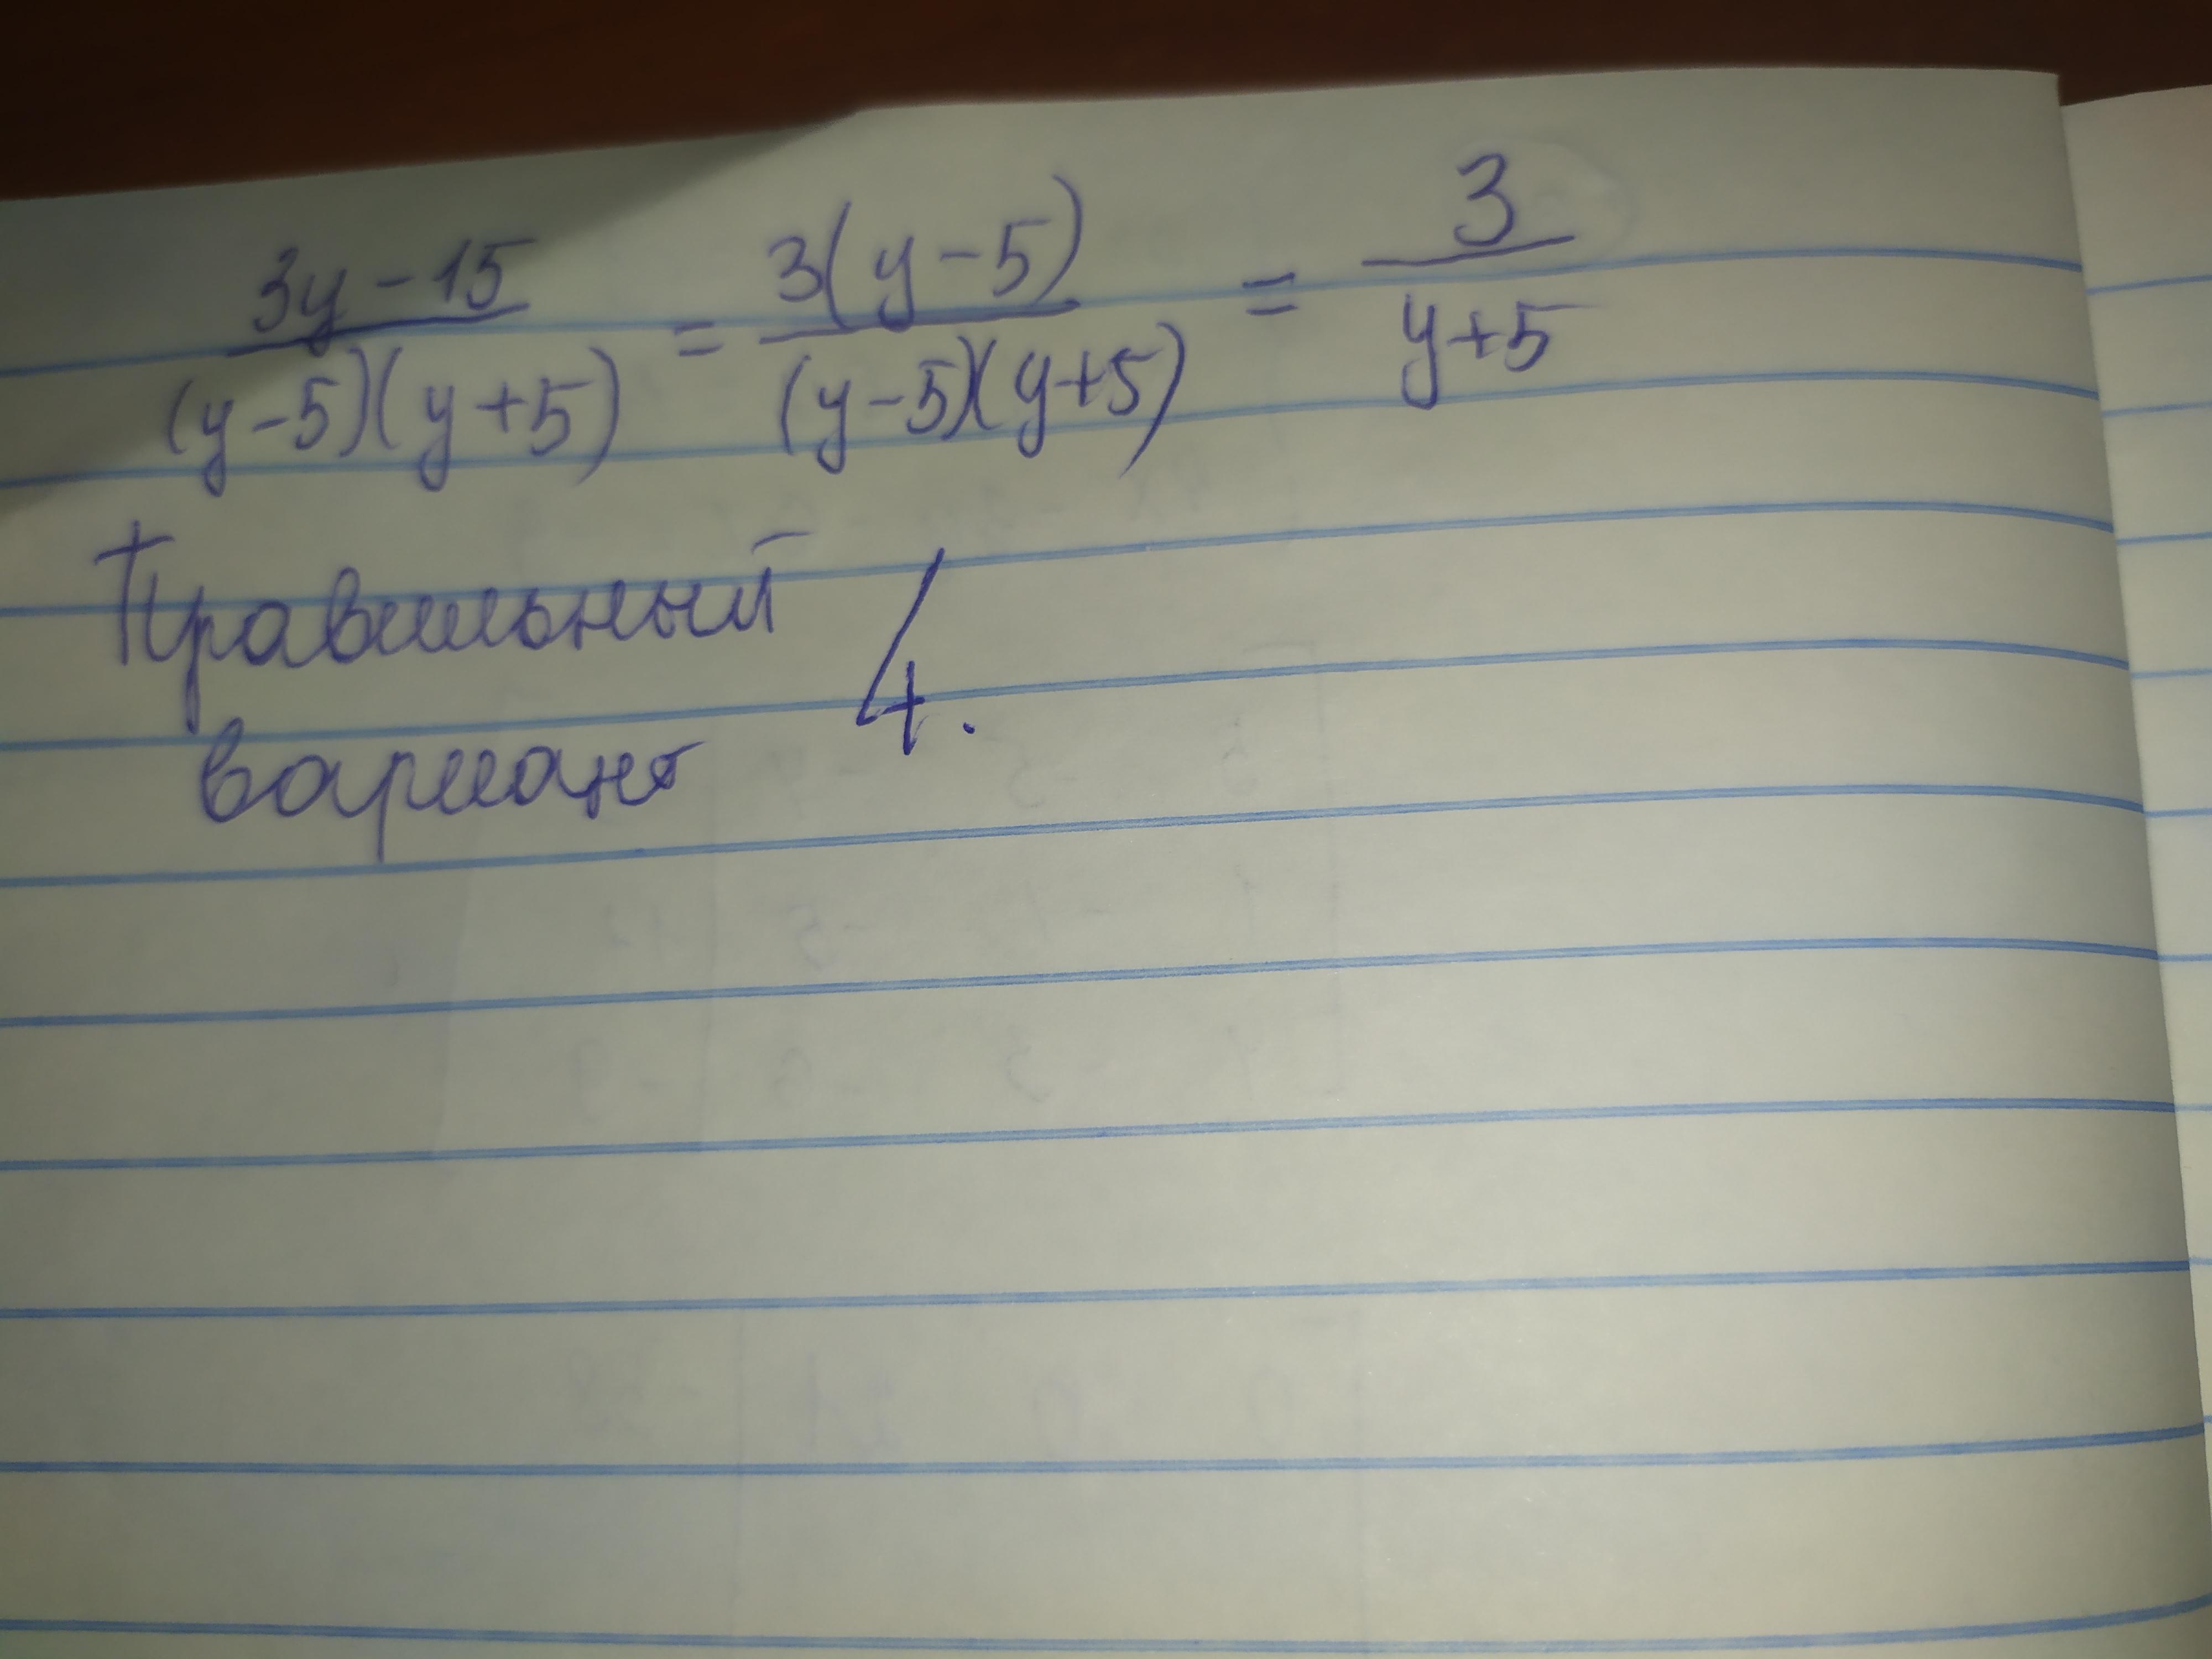 3y-15 / (y-5)(y+5) = 3(y-5) / (y-5)(y+5) = 3 / y+5
Правильный
вариант 4.